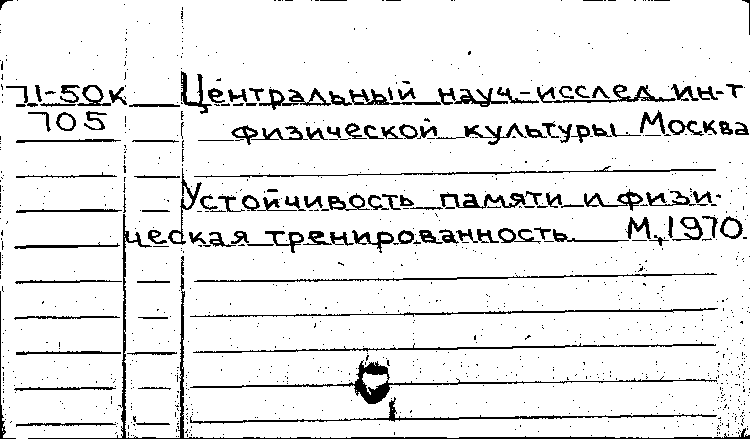 71-50к Центральный науч.-исслед. ин-т
705 физической культуры. Москва
Устойчивость памяти и физи-
ческая тренированность. М., 1970.